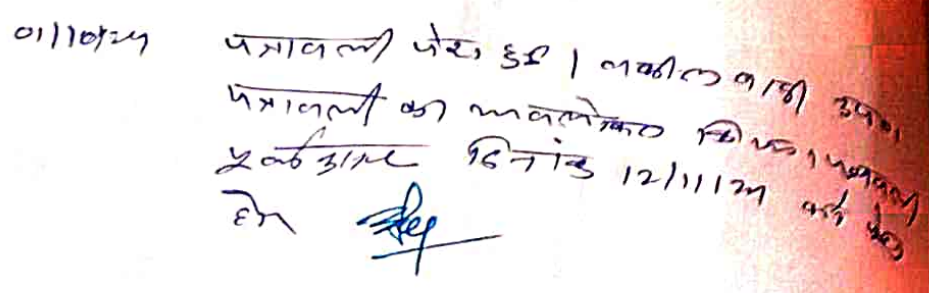 01/10/24 पत्रावली पेश हुई । वकील वादी उप0
पत्रावली का अवलोकन किया । पत्रावली
पूर्व आदेश दिनांक 12/11/24 को पेश
हो